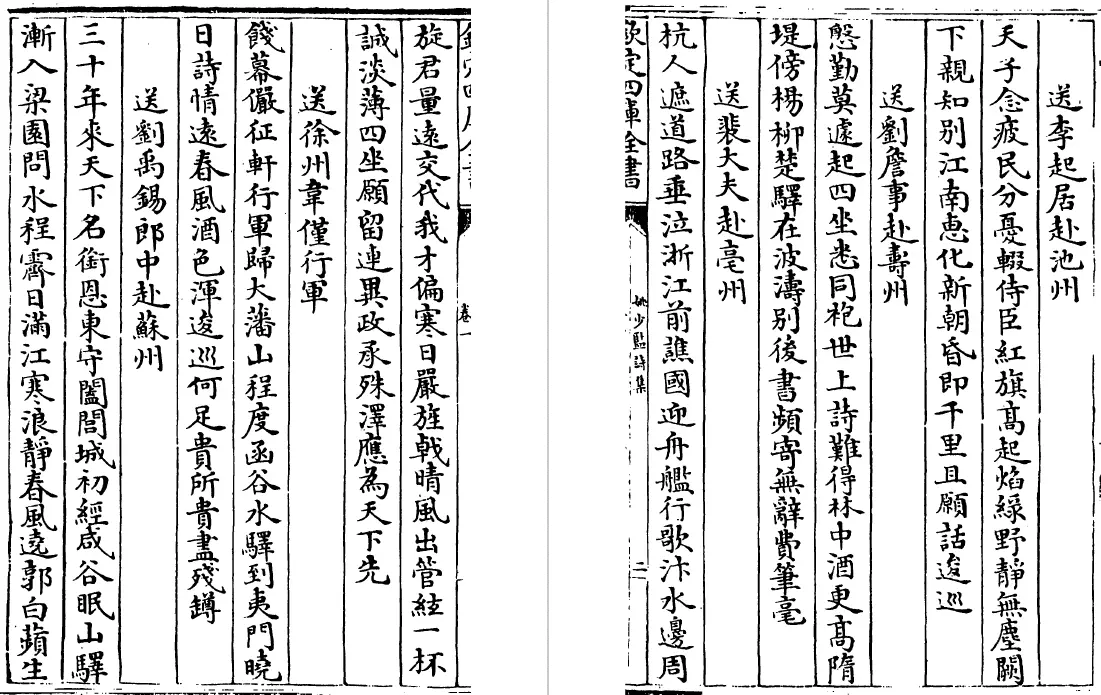 送李起居赴池州
天子念疲民分憂輟侍臣紅旗髙起焰緑野靜無塵闕
下親知别江南惠化新朝昏即千里且願話逡巡
送劉詹事赴壽州
慇勤莫遽起四坐悉同袍世上詩難得林中酒更髙隋
堤傍楊柳楚驛在波濤别後書頻寄無辭費筆毫
送裴大夫赴亳州
杭人遮道路垂泣浙江前譙國迎舟艦行歌汴水邊周
欽定四庫全書
姚少監詩集
二
卷一
旋君量遠交代我才偏寒日嚴旌㦸晴風出管絃一杯
誠淡薄四坐願留連異政承殊澤應為天下先
送徐州韋僅行軍
餞幕儼征軒行軍歸大藩山程度函谷水驛到夷門曉
日詩情遠春風酒色渾逡巡何足貴所貴盡殘罇
送劉禹錫郎中赴蘇州
三十年來天下名銜恩東守闔閭城初經咸谷眠山驛
漸入梁園問水程霽日滿江寒浪靜春風遶郭白蘋生